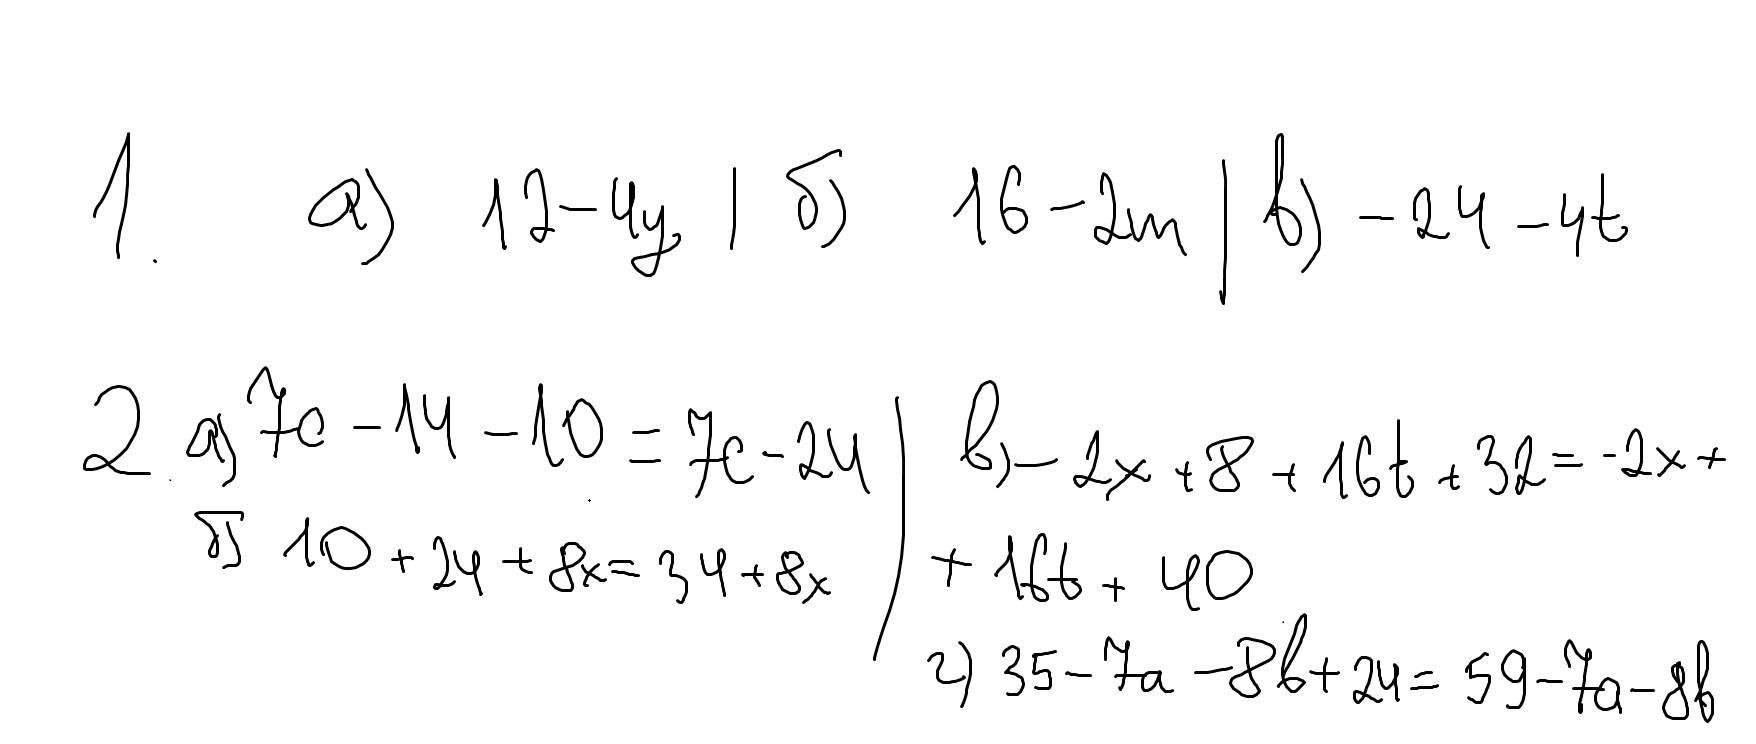 1. а) 12-4y | б) 16-2m | в) -24-4t
2. а) 7c-14-10=7c-24 | в) -2x+8+16t+32=-2x+
б) 10+24+8x=34+8x | +16t+40
г) 35-7a-8b+24=59-7a-8b